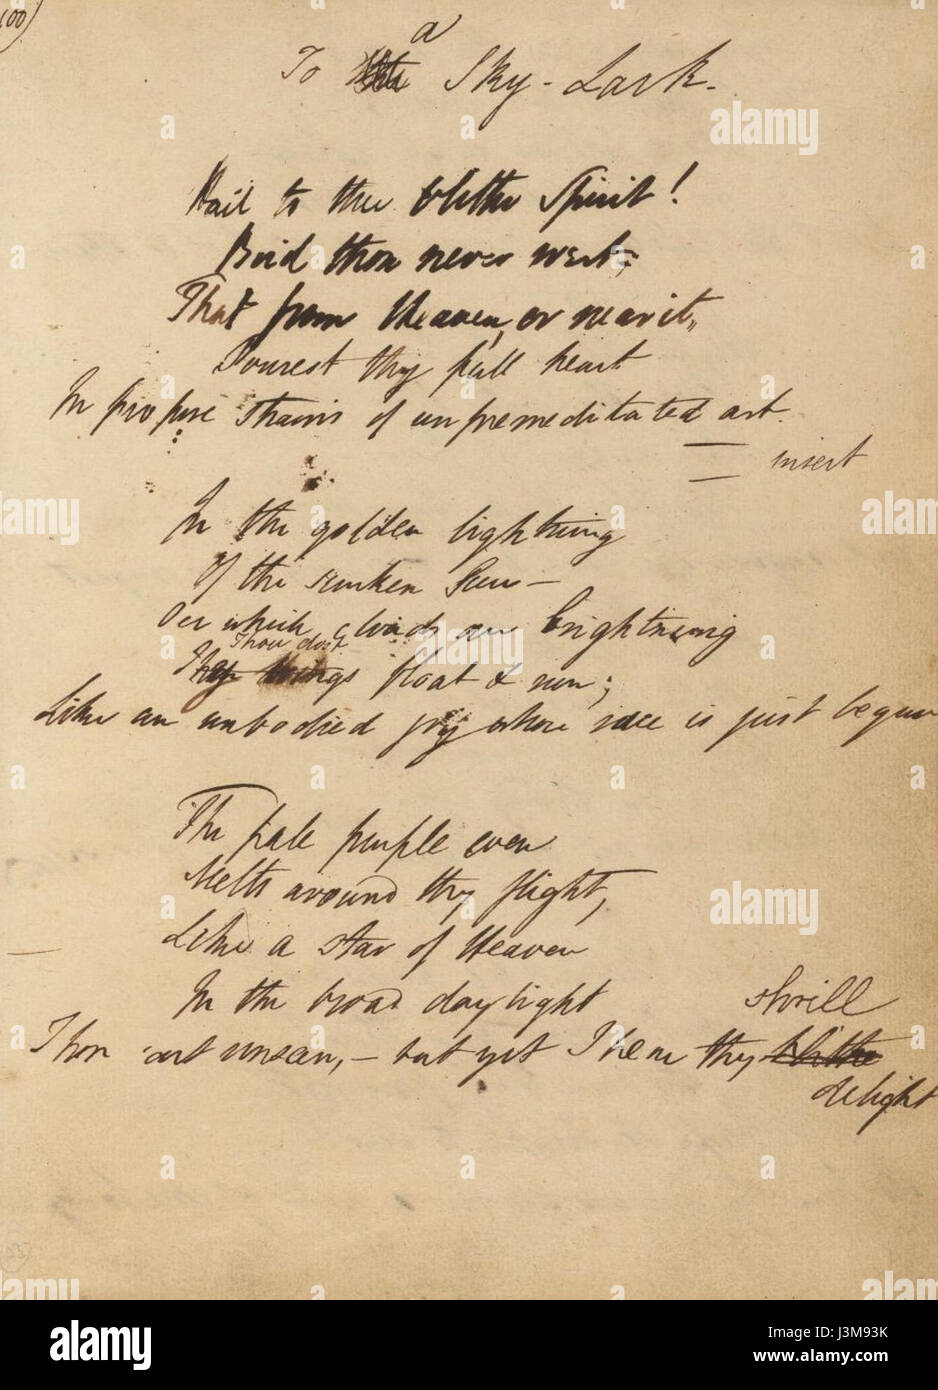 100)
a
To the Sky-Lark.
Hail to thee blithe Spirit!
Bird thou never wert,
That from Heaven, or near it,
Pourest thy full heart
In profuse strains of unpremeditated art.
insert
In the golden lightning
Of the sunken Sun—
Oer which clouds are brightning
Thou dost
Thy wings float & run;
Like an unbodied joy whose race is just begun
The pale purple even
Melts around thy flight,
Like a star of Heaven
In the broad daylight
shrill
Thou art unseen, — but yet I hear thy blithe
delight
alamy
Image ID: J3M93K
www.alamy.com